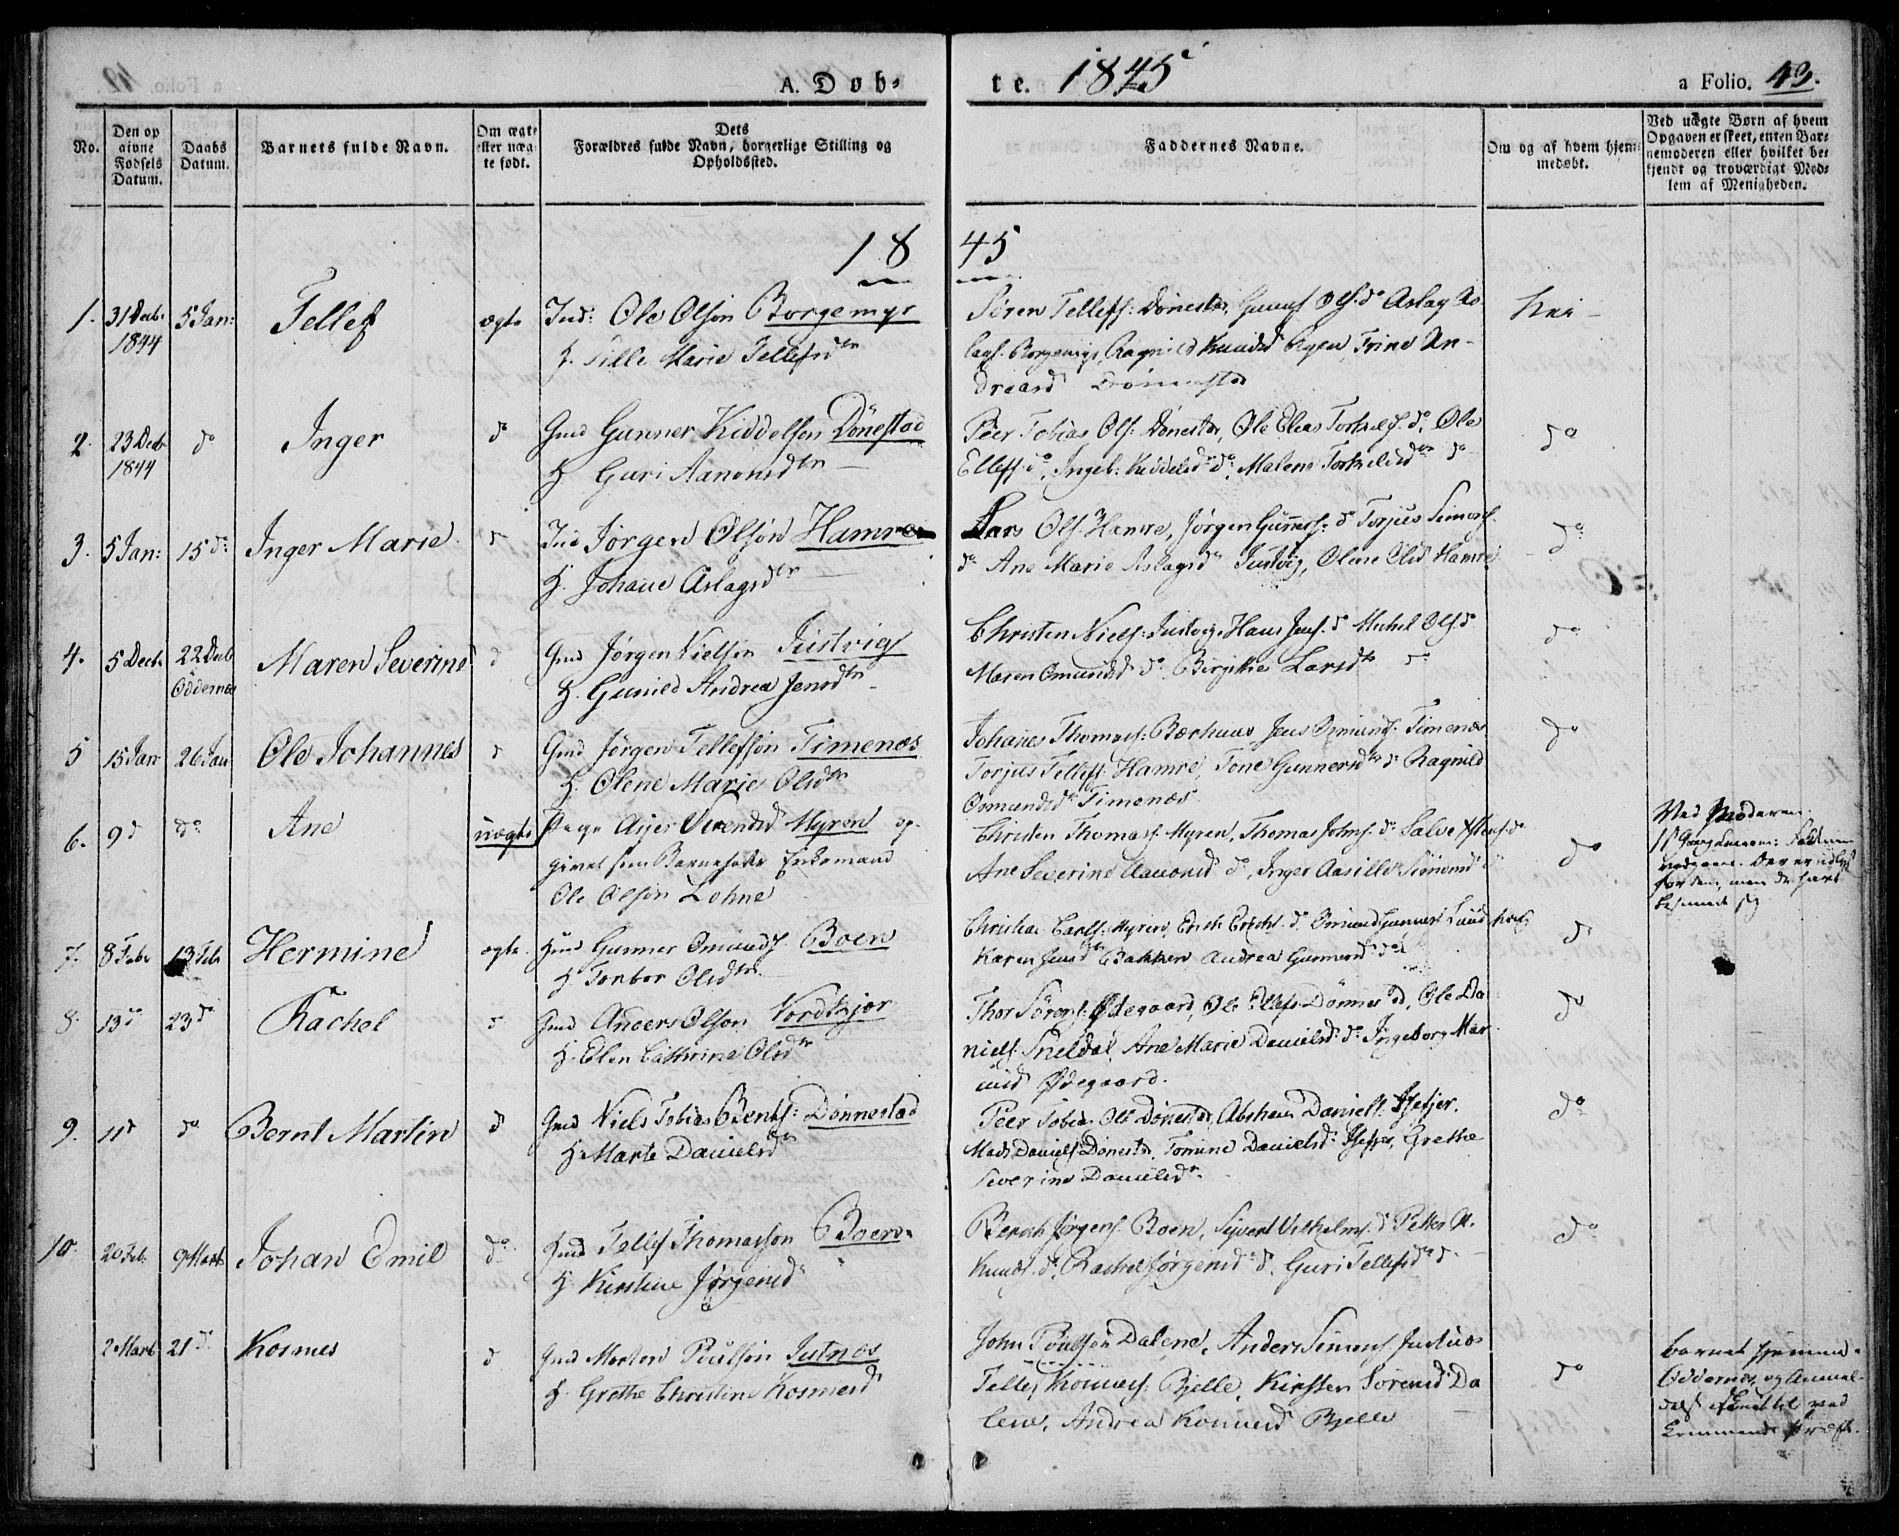 A. Døb-
te.
1845
a Folio. 43.
No.
Den op givne Fødsels Datum.
Daabs Datum.
Barnets fulde Navn.
Om ægte eller uægte født.
Dets
Forældres fulde Navn, borgerlige Stilling og
Opholdssted.
Faddernes Navne.
Om og af hvem hjemmedøbt.
Ved uægte Børn af hvem
Opgaven er skeet, enten Bar-
nemoderen eller hvilket be-
kjendt og troværdigt Med-
lem af Menigheden.
18 45
1. 31 Decb. 1844 5 Jan: Tellef ægte Ind: Ole Olsøn Borgemyr
H. Tille Marie Tellefsdtr
Søren Tellefs: Dønestad, Gunuf Ols. do Aslag As-
lags. Borgemyr, Ragnild Knudsd Trine An-
dreasd Dønnestad
Nei
2. 23 Decb 1844 do Inger do Gmd Gunner Kiddelsøn Dönestad
H Guri Aanonsdtr
Peer Tobias Ols: Dønestad, Ole Elias Torkels. do, Ole
Ellefs. do, Ingeb: Kiddelsd do, Malene Torkeldsdtr do
do
3. 5 Jan: 15 do Inger Marie do Ind Jørgen Olsøn Hamre
H. Johane Aslagsdtr
Lars Ols. Hamre, Jørgen Gunners: do Torjus Simons.
do Ane Marie Aslagsd Justvig, Olene Olsd Hamre
do
4. 5 Decb. 22 Decb Oddernes Maren Severine d Gmd Jørgen Nielsøn Justvig
H. Gunild Andrea Jensdtr
Christen Niels: Justvig, Hans Jens. do Michel Ols do
Maren Omundsd do Birgithe Larsdtr do
do
5 15 Jan 26 Jan Ole Johannes d Gmd Jørgen Tellefsøn Timenes
H. Olene Marie Olsdtr
Johanes Thomas: Bærhuus Jens Osmunds. Timenes
Torjus Tellefs: Hamre, Tone Gunnersdtr do Ragnild
Osmundsdtr Timenes
do
6. 9 d do Ane uægte Pige Svendsd Myren op-
givet som Barnefader Enkemand
Ole Olsøn Lohne
Christen Thomas. Myren, Thomas Johns. do Salve
Ane Severine Aanonsd do, Inger Aasille Simonsd d
do
Ved Moderen.
7. 8 Feb 13 Feb Hermine ægte Gmd Gunner Omunds. Boen
H Torbor Olsdtr
Christian Carls. Myren, Erich Erichs. do Omund Gunners
Karen Jensd Bakken Andrea Gunnersd do
do
8. 13 do 23 do Rachel d Gmd Anders Olsøn Nordkjær
H. Ellen Cathrine Olsdtr
Thor Sörens. Ødegaard, Ole Ellefs Dönnestad, Ole Da-
niels. Sneldal, Ane Marie Danielsd do Ingeborg Mar-
Ødegaard.
do
9. 11 d do Bernt Martin d Gmd Niels Tobias Bents: Dønnestad
H. Marte Danielsd
Peer Tobias Ols Dønestad, Abraham Daniels.
Mads Daniels. Dønestad, Tomine Danielsd. Grethe
Severine Danielsdtr
do
10. 20 Feb. 9 Marts Johan Emil do Gmd Tellef Thomasson Boen
H Kirstine Jørgensd
Berent Jørgens. Boen, Sivert Vilhelms. do Petter
Knuds. do, Rachel Jørgensd do. Guri Tellefsd d
do
2 Marts 21 d Kosmes d Gmd Morten Poulsøn Justnes
H. Grethe Christine Kosmesd
John Poulsøn Dalene, Anders Simons Justnes
Tellef Kosmes: Bjelle, Kirsten Sørensd Da-
lene, Andrea Kosmesd Bjelle
do
Barnet
Oddernes, og